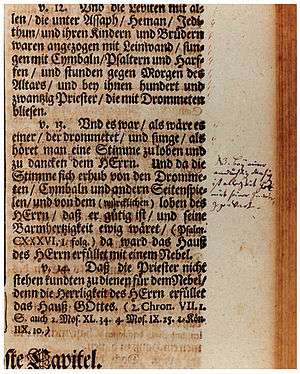 v. 12. Und die Leviten mit al-
len / die unter Assaph / Heman / Jedi-
thun / und ihren Kindern und Brüdern
waren angezogen mit Leinwand / sun-
gen mit Cymbaln / Psaltern und Harf-
fen / und stunden gegen Morgen des
Altars / und bey ihnen hundert und
zwanzig Priester / die mit Drommeten
bliesen.
v. 13. Und es war / als wäre es
einer / der drommetet / und sünge / als
höret man eine Stimme zu loben und
zu dancken dem HErrn. Und da die
Stimme sich erhub von den Dromme-
ten / Cymbaln und andern Seitenspie-
len / und von dem (würcklichen) loben des
HErrn / daß er gütig ist / und seine
Barmhertzigkeit ewig wäret / (Psalm.
CXXXVI, 1. folg.) da ward das Hauß
des HErrn erfüllet mit einem Nebel.
v. 14. Daß die Priester nicht
stehen kundten zu dienen für dem Nebel /
denn die Herrligkeit des HErrn erfüllet
das Hauß GOttes. (2. Chron. VII. 1.
S. auch 2. Mos. XL. 34. 4. Mos. IX. 15. 1. Kön.
IIX, 10.)
ste Capitel.
NB.